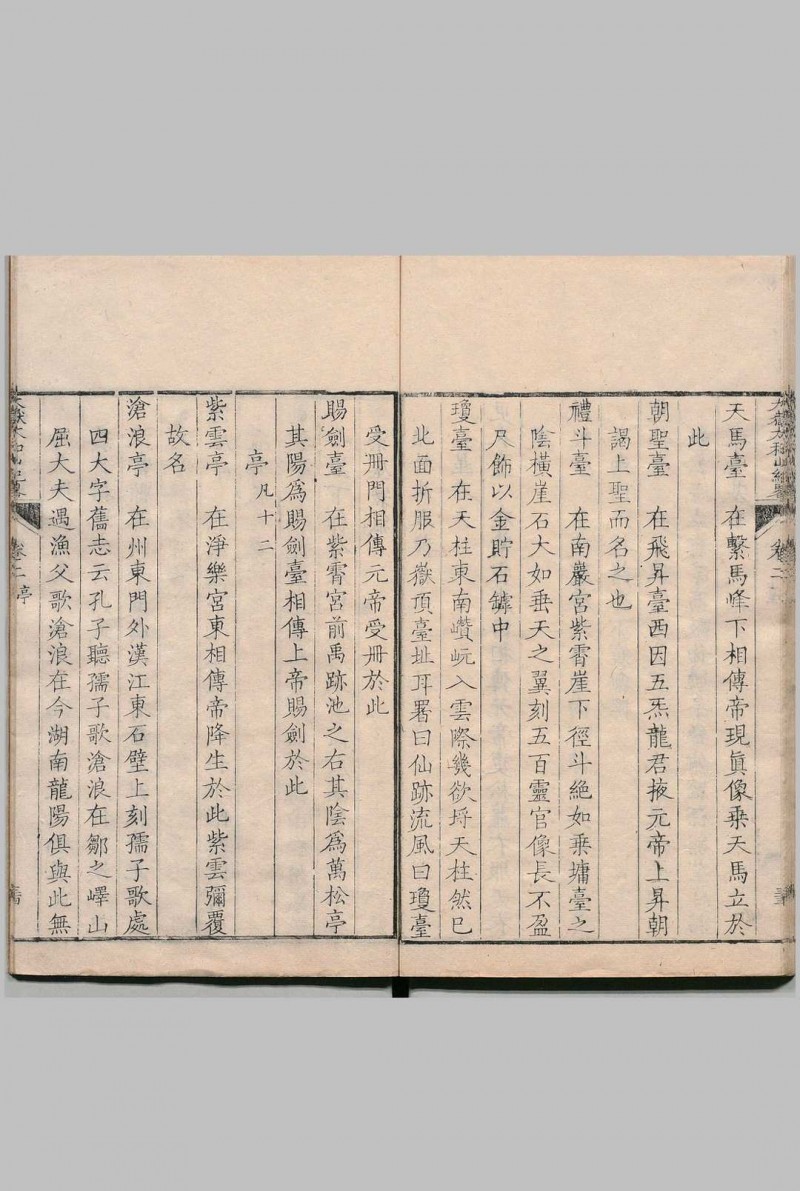 天馬臺　在繫馬峰下相傳帝現眞像乗天馬立於
此
朝聖臺　在飛昇臺西因五炁龍君掖元帝上昇朝
謁上聖而名之也
禮斗臺　在南巖宮紫霄崖下徑斗絕如乗墉臺之
陰橫崖石大如垂天之翼刻五百靈官像長不盈
尺飾以金貯石罅中
瓊臺　在天柱東南巑岏入雲際幾欲埒天柱然已
北面折服乃嶽頂臺址耳署曰仙跡流風曰瓊臺
受册門相傳元帝受册於此
賜劍臺　在紫霄宮前禹跡池之右其陰爲萬松亭
其陽爲賜劍臺相傳上帝賜劍於此
亭 凡十二
紫雲亭　在淨樂宮東相傳帝降生於此紫雲彌覆
故名
滄浪亭　在州東門外漢江東石壁上刻孺子歌處
四大字舊志云孔子聽孺子歌滄浪在鄒之嶧山
屈大夫遇漁父歌滄浪在今湖南龍陽俱與此無
卷二 亭